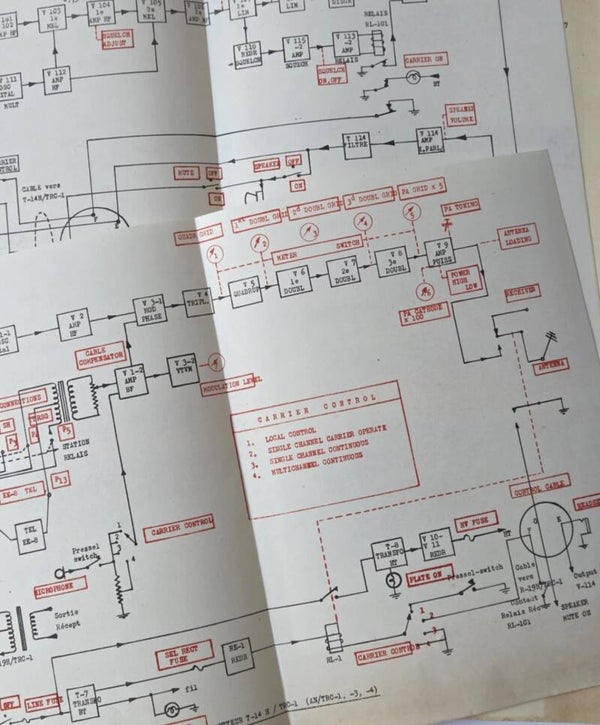 V 103
1e
MEL
V 104
1e
AMP MF
V 105
2e
MEL
SQUELCH
ADJUST
V 111
OSC
MULT
V 112
AMP
HF
LIM
LIM
V 110
REDR
SQUELCH
V 115
-2
AMP
SQUECH
V 113
-2
AMP
RELAIS
RELAIS
RL-101
SQUELCH
ON,OFF
CARRIER ON
BT
SPEAKER
VOLUME
T 114
FILTRE
V 114
AMP
H.PARL.
MUTE
OFF
ON
SPEAKER
OFF
ON
CABLE vers
T-14H/TRC-1
QUAD GRID
1st DOUBL GRID
2d DOUBL GRID
3d DOUBL GRID
PA GRID x 5
PA TUNING
1
2
3
4
5
METER
SWITCH
ANTENNA
LOADING
V 2
AMP
HF
V 3-1
MOD
PHASE
V 4
TRIPL.
V 5
QUADRUP
V 6
1e
DOUBL
V 7
2e
DOUBL
V 8
3e
DOUBL
V 9
AMP
PUISS
POWER
HIGH
LOW
6
PA CATHODE
x 100
RECEIVER
ANTENNA
CABLE
COMPENSATOR
V 1-2
AMP
BF
V 3-2
VTVM
MODULATION LEVEL
CARRIER CONTROL
1. LOCAL CONTROL
2. SINGLE CHANNEL CARRIER OPERATE
3. SINGLE CHANNEL CONTINUOUS
4. MULTICHANNEL CONTINUOUS
CONNECTIONS
SH
P5
STATION
RELAIS
EE-8 TEL
P13
TEL
EE-8
Pressel
switch
1
2
4
CARRIER CONTROL
MICROPHONE
Sortie
Récept
CONTROL CABLE
HEADSET
T-8
TRANSFO
HT
V 10-
V 11
REDR
HV FUSE
HT
PLATE ON
Pressel-switch
Cable
vers
R-19H/TRC-1
Contact
Relais Réc
RL-101
Output
V-114
SPEAKER
MUTE ON
RL-1
CARRIER CONTROL
1
2
3
4
SEL RECT
FUSE
RE-1
REDR
OFF
LINE FUSE
T-7
TRANSFO
BT
fil
T-14 H / TRC-1 (AN/TRC-1, -3, -4)